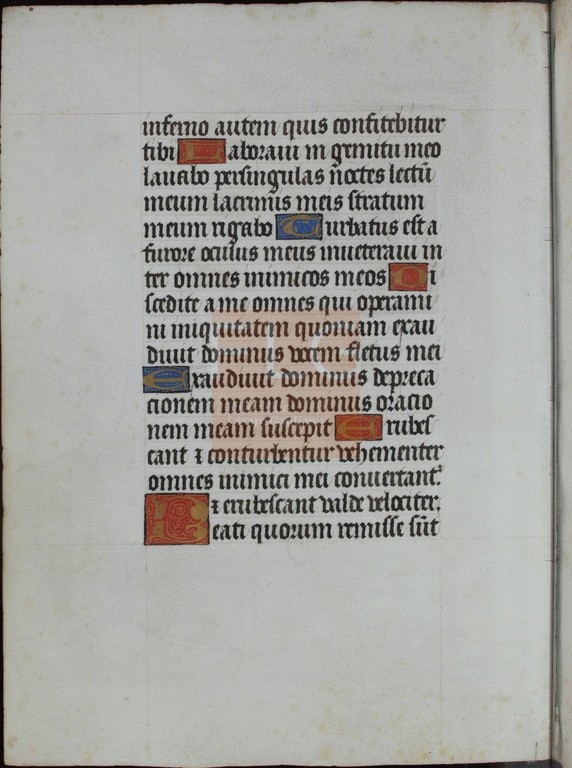 inferno autem quis confitebitur
tibi Laboraui in gemitu meo
lauabo persingulas noctes lectū
meum lacrimis meis stratum
meum rigabo Turbatus est a
furore oculus meus inueteraui in
ter omnes inimicos meos Di
scedite a me omnes qui operami
ni iniquitatem quoniam exau
diuit dominus vocem fletus mei
Exaudiuit dominus depreca
cionem meam dominus oracio
nem meam suscepit Erubes
cant ⁊ conturbentur vehementer
omnes inimici mei conuertant᷑
⁊ erubescant valde velociter.
Beati quorum remisse sūt